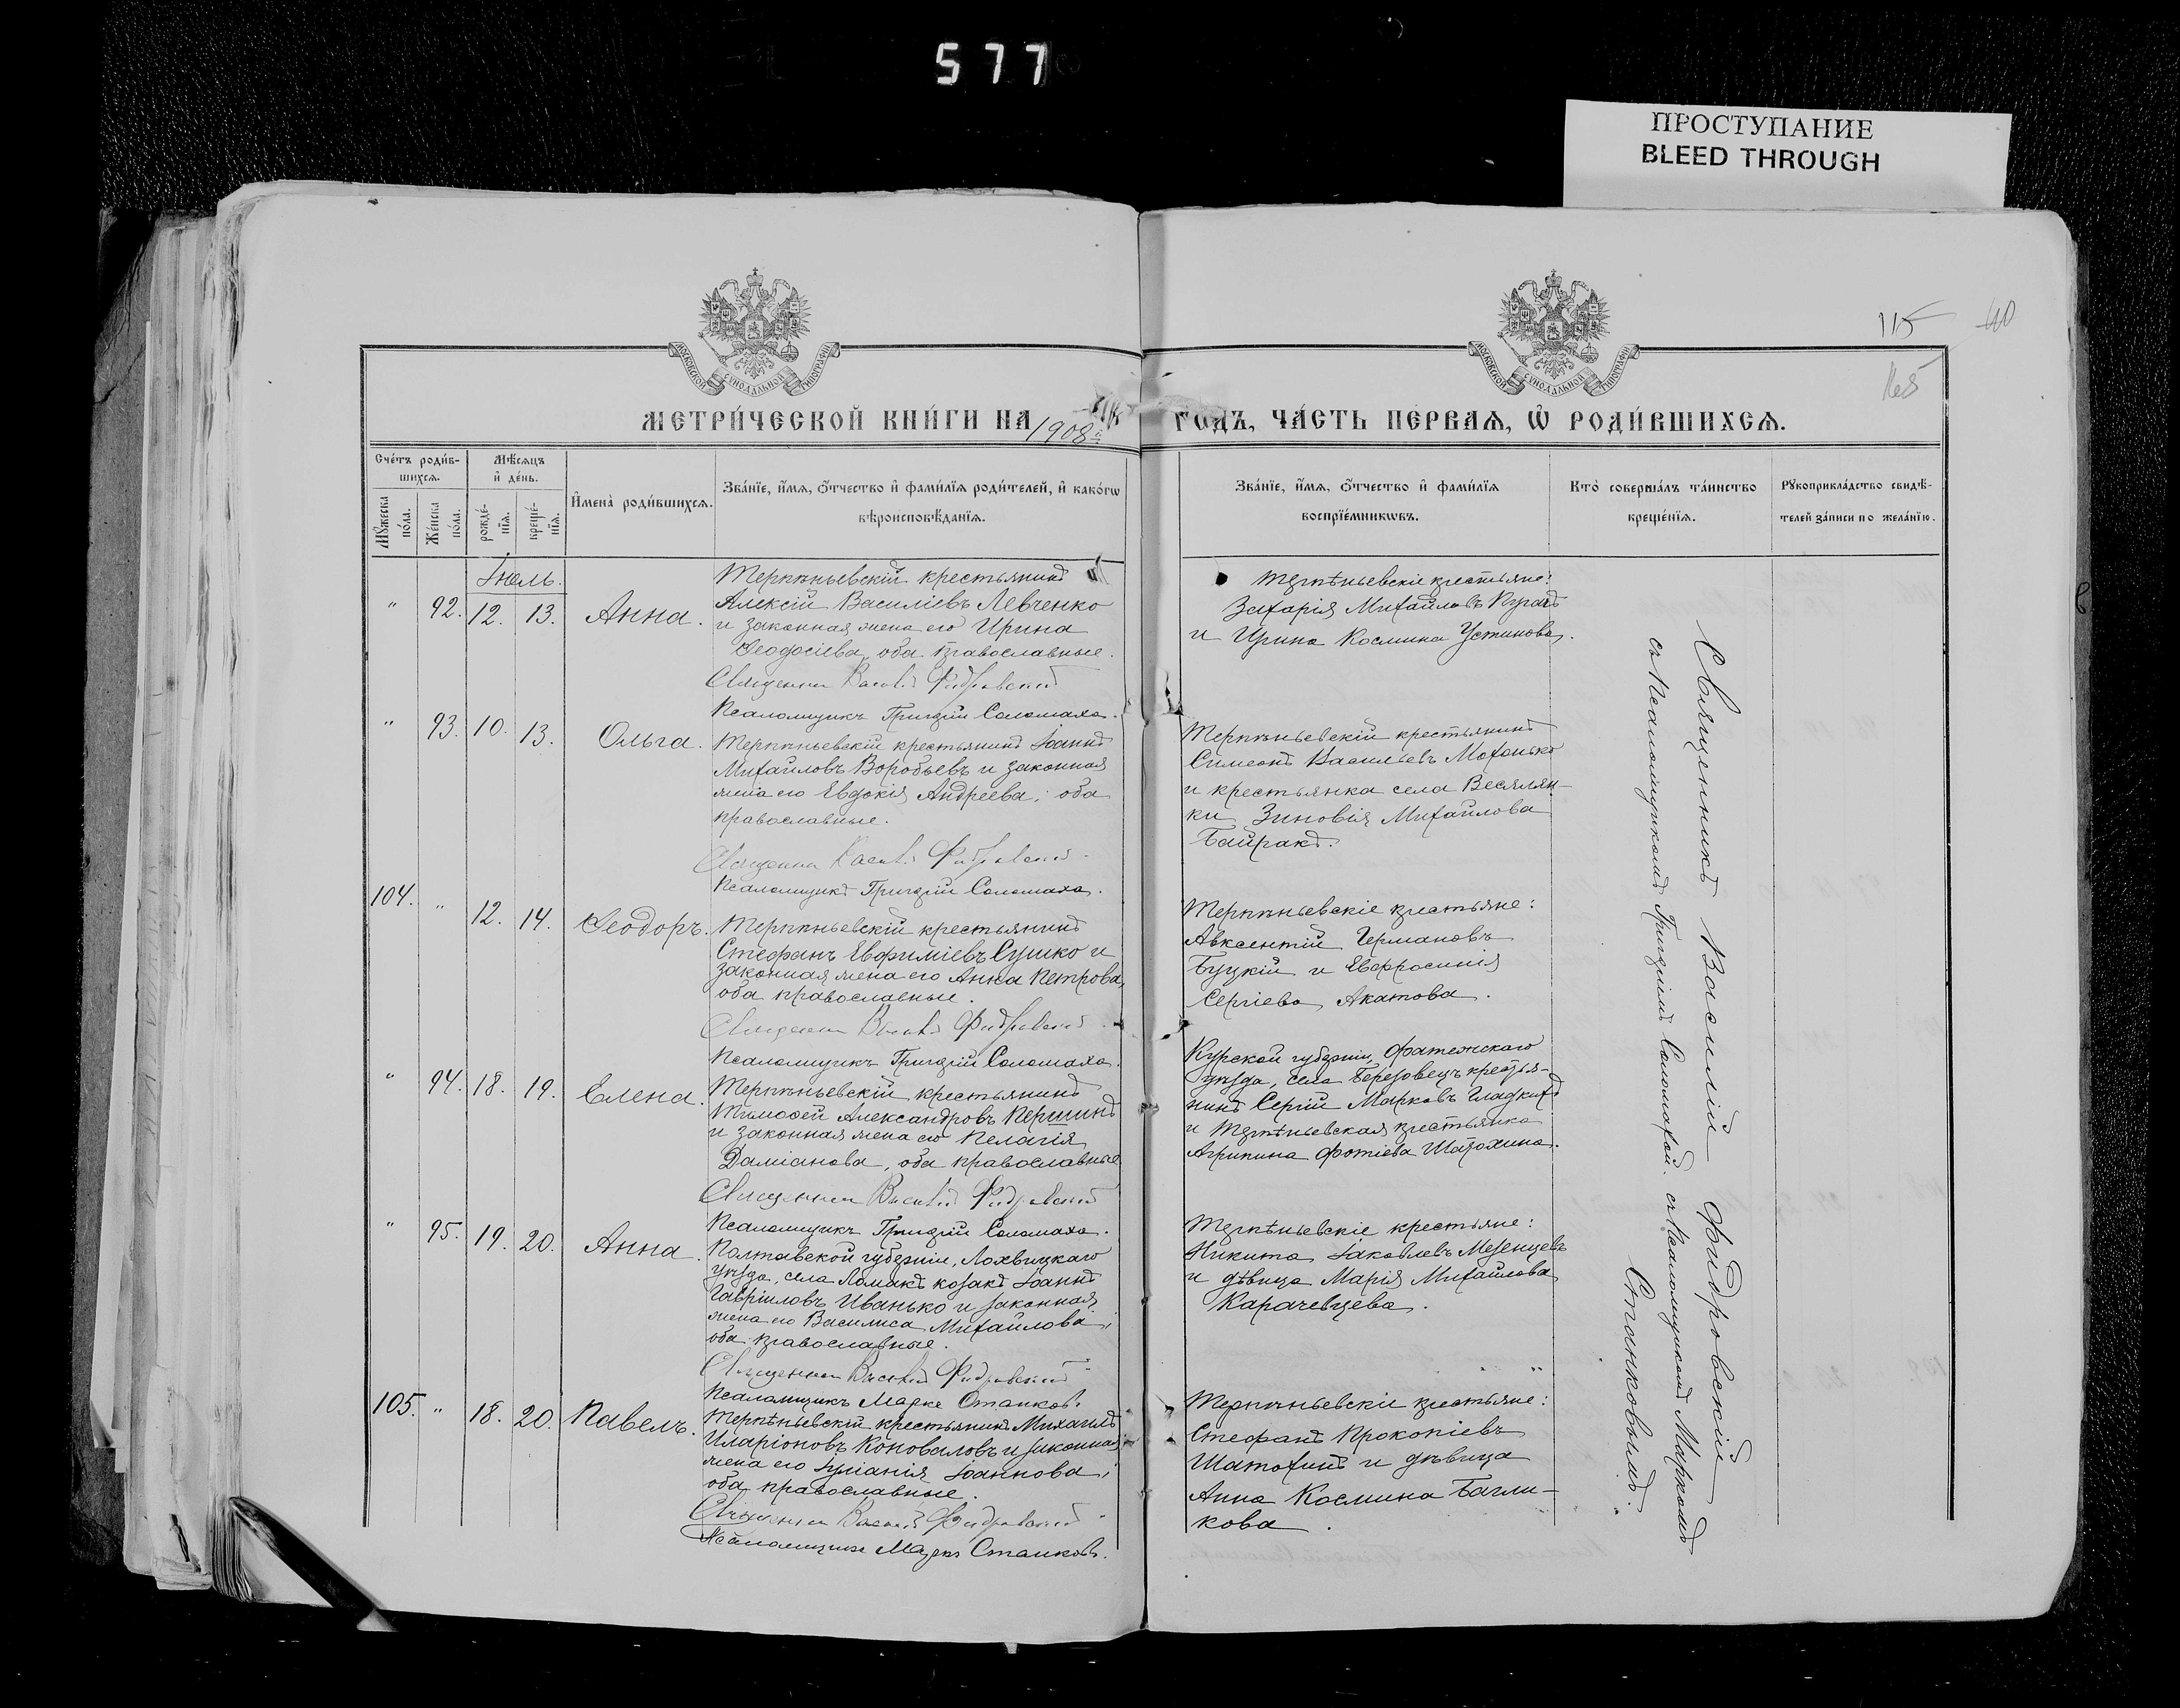 577
ПРОСТУПАНИЕ
BLEED THROUGH
115
40
165
МОСКОВСКОЙ СѴНОДАЛЬНОЙ ТИПОГРАФІИ
МОСКОВСКОЙ СѴНОДАЛЬНОЙ ТИПОГРАФІИ
МЕТРИ́ЧЕСКОЙ КНИ́ГИ НА 1908й ГОДЪ, ЧА́СТЬ ПЕРВАѦ, Ѡ҆ РОДИ́ВШИХСѦ.
Сче́тъ роди́в-
шихсѧ.
Мꙋ́жеска по́ла.
Же́нска по́ла.
Мѣ́сѧцъ
и҆ де́нь.
рожде́-
нїѧ.
креще́-
нїѧ.
И҆мена̀ роди́вшихсѧ.
Зва́нїе, и҆́мѧ, ѻ҆́тчество и҆ фами́лїѧ роди́телей, и҆ како́гѡ
вѣроисповѣ́данїѧ.
Зва́нїе, и҆́мѧ, ѻ҆́тчество и҆ фами́лїѧ
воспрїе́мникѡвъ.
Кто̀ соверша́лъ та́инство
креще́нїѧ.
Рꙋкоприкла́дство свидѣ́-
телей за́писи по жела́нїю.
Іюль.
" 92. 12. 13. Анна.
Терпѣньевскій крестьянинъ
Алексій Василіевъ Левченко
и законная жена его Ирина
Ѳеодосіева, оба православные.
Священник Василій Фидровский
Псаломщикъ Григорій Соломаха.
Терпѣньевскіе крестьяне:
Захарія Михайловъ
и Ирина Космина Устинова.
" 93. 10. 13. Ольга.
Терпѣньевскій крестьянинъ Іоаннъ
Михайловъ Воробьевъ и законная
жена его Евдокія Андреева, оба
православные.
Священник Василій Фидровский
Псаломщикъ Григорій Соломаха.
Терпѣньевскій крестьянинъ
Симеонъ Васильевъ Мохонько
и крестьянка села Веселян-
ки Зиновія Михайлова
Байракъ.
104. " 12. 14. Ѳеодоръ.
Терпѣньевскій крестьянинъ
Стефанъ Евфиміевъ Сушко и
законная жена его Анна Петрова,
оба православные.
Священник Василій Фидровский
Псаломщикъ Григорій Соломаха.
Терпѣньевскіе крестьяне:
Авксентій Германовъ
Буцкій и Евфросинія
Сергіева Акатова.
" 94. 18. 19. Елена.
Терпѣньевскій крестьянинъ
Тимоѳей Александровъ Першинъ
и законная жена его Пелагія
Даміанова, оба православные
Священник Василій Фидровский
Псаломщикъ Григорій Соломаха.
Курской губерніи, Фатежскаго
уѣзда, села Березовецъ крестья-
нинъ Сергій Марковъ Гладкихъ
и Терпѣньевская крестьянка
Агрипина Фотіева Шатохина.
" 95. 19. 20. Анна.
Полтавской губерніи, Лохвицкаго
уѣзда, села Ломакъ козакъ Іоаннъ
Гавріиловъ Иванько и законная
жена его Василиса Михайлова,
оба православные.
Священник Василій Фидровский
Псаломщикъ Маркъ Станковъ.
Терпѣньевскіе крестьяне:
Никита Іаковлевъ Мезенцевъ
и дѣвица Марія Михайлова
Карачевцева.
105. " 18. 20. Павелъ.
Терпѣньевскій крестьянинъ Михаилъ
Иларіоновъ Коноваловъ и законная
жена его Іуліанія Іоаннова,
оба православные.
Священник Василій Фидровский
Псаломщикъ Маркъ Станковъ.
Терпѣньевскіе крестьяне:
Стефанъ Прокопіевъ
Шатохинъ и дѣвица
Анна Космина Багли-
кова.
Священникъ Василій Фидровскій
съ Псаломщикомъ Григоріемъ Соломахой. съ Псаломщикомъ Маркомъ
Станковымъ.